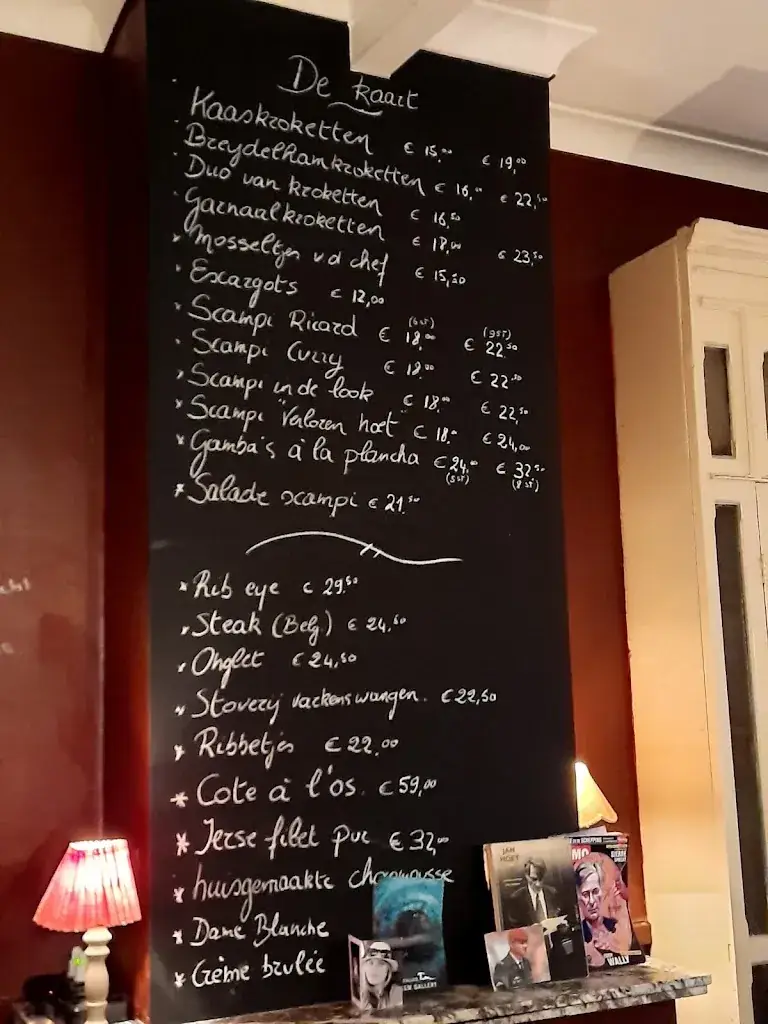 De kaart
Kaaskroketten € 15,00 € 19,00
Breydelhamkroketten € 16,00 € 22,50
Duo van kroketten € 16,50
Garnaalkroketten € 18,00 € 23,50
* Mosseltjes v d chef € 15,50
Escargots € 12,00
Scampi Ricard € 18,00 (6 st) € 22,50 (9 st)
Scampi Curry € 18,00 € 22,50
Scampi in de look € 18,00 € 22,50
* Scampi "Verloren hoek" € 18,- € 24,00
* Gamba's à la plancha € 24,00 (5 st) € 32,50 (8 st)
* Salade scampi € 21,50
* Rib eye € 29,50
* Steak (Belg.) € 24,50
* Onglet € 24,50
* Stoverij varkenswangen. € 22,50
* Ribbetjes € 22,00
* Cote à l'os. € 59,00
* Ierse filet pur € 32,00
* huisgemaakte chocomousse
* Dame Blanche
* Crème brulée
JAN
HOET
WALLY
GALLERY